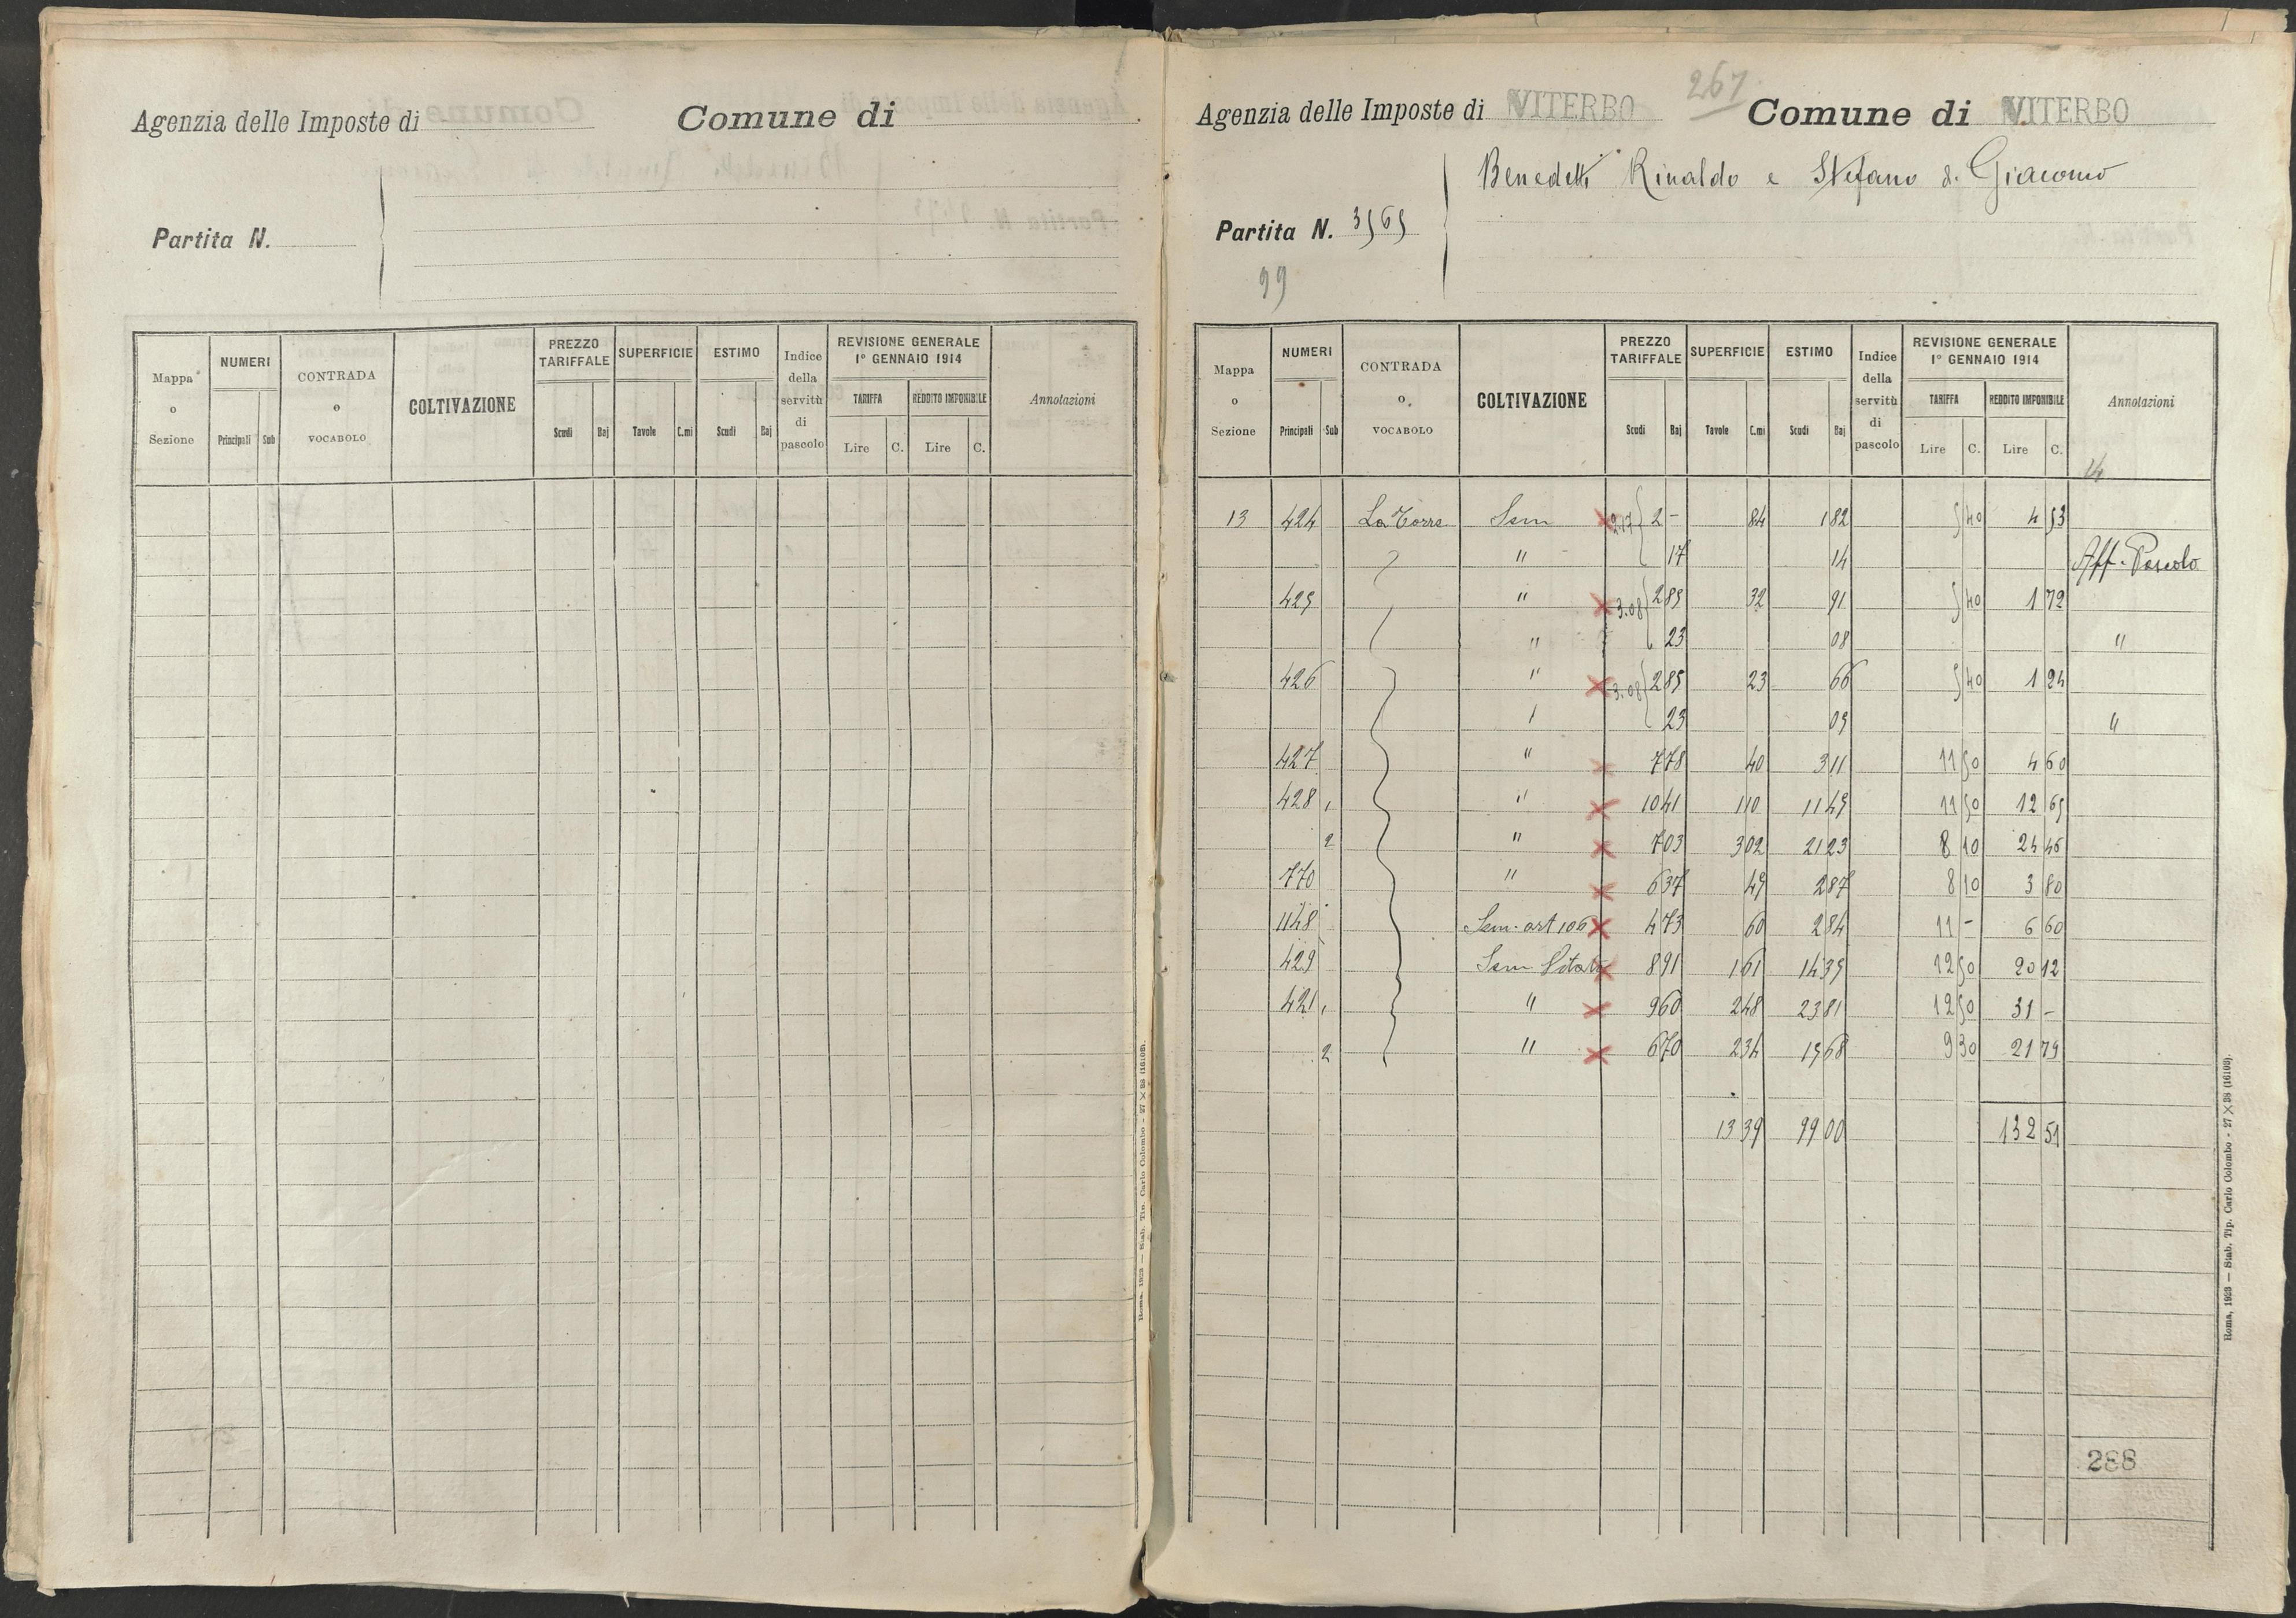 Agenzia delle Imposte di
Comune di
Partita N.
Mappa o Sezione
NUMERI
Principali
Sub
CONTRADA o VOCABOLO
COLTIVAZIONE
PREZZO TARIFFALE
Scudi
Baj
SUPERFICIE
Tavole
C.mi
ESTIMO
Scudi
Baj
Indice della servitù di pascolo
REVISIONE GENERALE
1° GENNAIO 1914
TARIFFA
REDDITO IMPONIBILE
Lire
C.
Lire
C.
Annotazioni
Roma, 1923 — Stab. Tip. Carlo Colombo - 27 × 38 (16108).
267
Agenzia delle Imposte di VITERBO Comune di VITERBO
Benedetti Rinaldo e Stefano di Giacomo
Partita N. 3565
99
Mappa o Sezione
NUMERI
Principali
Sub
CONTRADA o VOCABOLO
COLTIVAZIONE
PREZZO TARIFFALE
Scudi
Baj
SUPERFICIE
Tavole
C.mi
ESTIMO
Scudi
Baj
Indice della servitù di pascolo
REVISIONE GENERALE
1° GENNAIO 1914
TARIFFA
REDDITO IMPONIBILE
Lire
C.
Lire
C.
Annotazioni
14
13 424 La Torre Sem 2.17 2 - 84 1 82 5 40 4 53
" 17 14 Aff. Pascolo
425 " 3.08 2 85 32 91 5 40 1 72
" 23 08 "
426 " 3.08 2 85 23 66 5 40 1 24
" 23 05 "
427 " 7 78 40 3 11 11 50 4 60
428 1 " 10 41 1 10 11 45 11 50 12 65
2 " 7 03 3 02 21 23 8 10 24 46
770 " 6 37 45 2 87 8 10 3 80
1148 Sem. art 106 4 73 60 2 84 11 - 6 60
429 Sem Vitato 8 91 1 61 14 35 12 50 20 12
421 1 " 9 60 2 48 23 81 12 50 31 -
2 " 6 70 2 34 15 68 9 30 21 79
13 39 99 00 132 51
288
Roma, 1923 — Stab. Tip. Carlo Colombo - 27 × 38 (16108).